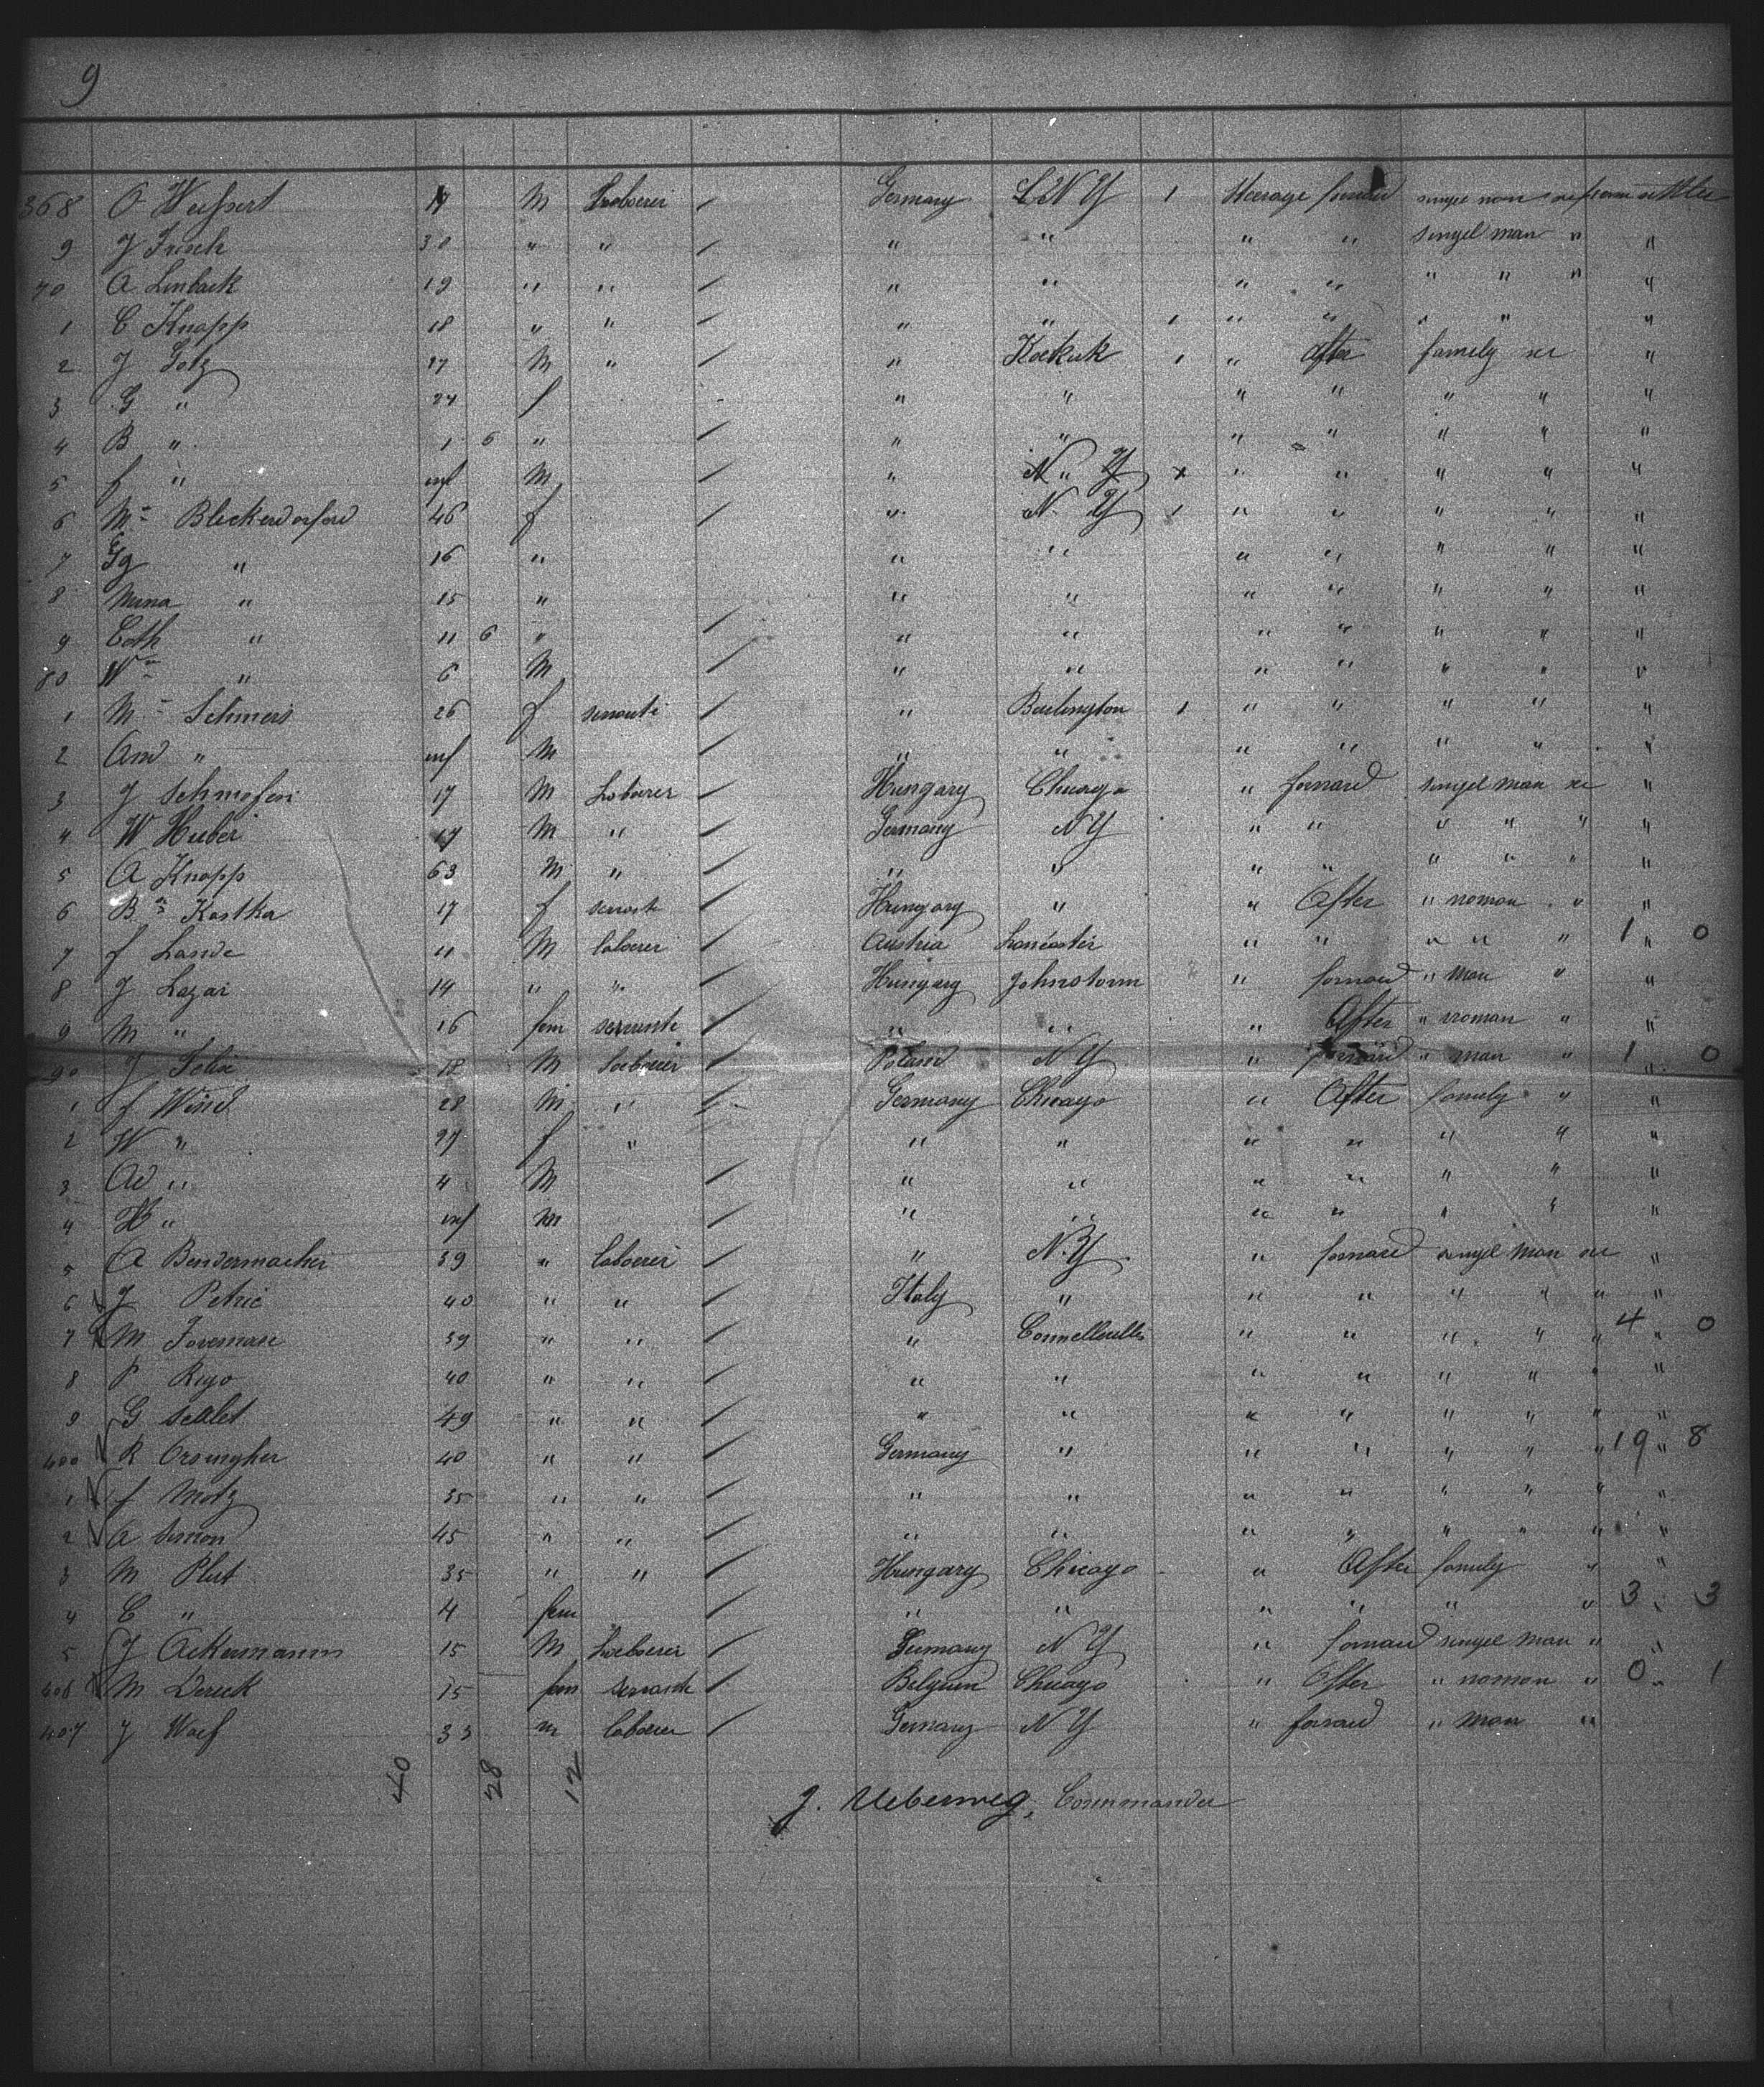 9
368 O Weifsert 17 M Laboerer / Germany N Y 1 Steerage forward singel man settler
9 J Frisch 38 " " / " " " " singel man " "
70 A Linback 19 " " / " " " " " " " "
1 C Knapp 18 " " / " " 1 " " " " "
2 J Gotz 27 M " / " Keokuk 1 " After famely "
3 G " 24 f " " " " " " "
4 B " 1 6 " / " " " " " " "
5 f " inf M / " N " Y x " " " " "
6 M Bleckendorford 46 f / " N. Y 1 " " " " "
7 " 16 " " " " " " " "
8 Mina " 15 " " " " " " " "
9 Cath " 11 6 " / " " " " " " "
80 Wm " 6 M / " " " " " " "
1 M Schmeis 26 f servante / " Burlington 1 " " " " "
2 And " inf M / " " " " " " "
3 J Schmofen 17 M Laboerer / Hungary Chicago " forward singel man "
4 W Huber 17 M " / Germany N Y " " " " " "
5 A Knapp 63 M " / " " " " " " " "
6 B Kostka 17 f servante / Hungary " " After " woman " "
7 f Lande 11 M laboerer / Austria Lancaster " " " " " 1 " 0
8 J Lazar 14 " " / Hungary Johnstown " forward " man " "
9 M " 16 fem servante / " " " After " woman " "
90 J Felix 18 M Laboerer / Poland N Y " forward " man " 1 " 0
1 f Wind 28 M " / Germany Chicago " After famely " "
2 W " 27 f " " " " " " " "
3 Ad " 4 M / " " " " " " "
4 H " inf M / " " " " " " "
5 A Bendermacher 39 " laboerer / " N. Y. " forward singel man "
6 J Petrie 40 " " / Italy " " " " " " "
7 M Foreman 39 " " / " Connellsville " " " " " 4 " 0
8 P Rigo 40 " " / " " " " " " " "
9 G Scalet 49 " " / " " " " " " " "
400 R Orsingher 40 " " / Germany " " " " " " 19 " 8
1 f Motz 35 " " / " " " " " " " "
2 A Simon 45 " " / " " " " " " " "
3 M Plut 35 " " / Hungary Chicago " After famely " "
4 C " 4 fem / " " " " " " 3 " 3
5 J Ackermann 15 M Laboerer / Germany N Y " forward singel man " "
406 M Dereck 15 fem servante / Belgium Chicago " After " woman " 0 " 1
407 J Waef 33 m laboerer / Germany N Y " forward " man "
40 28 12
J. Ueberweg, Commander